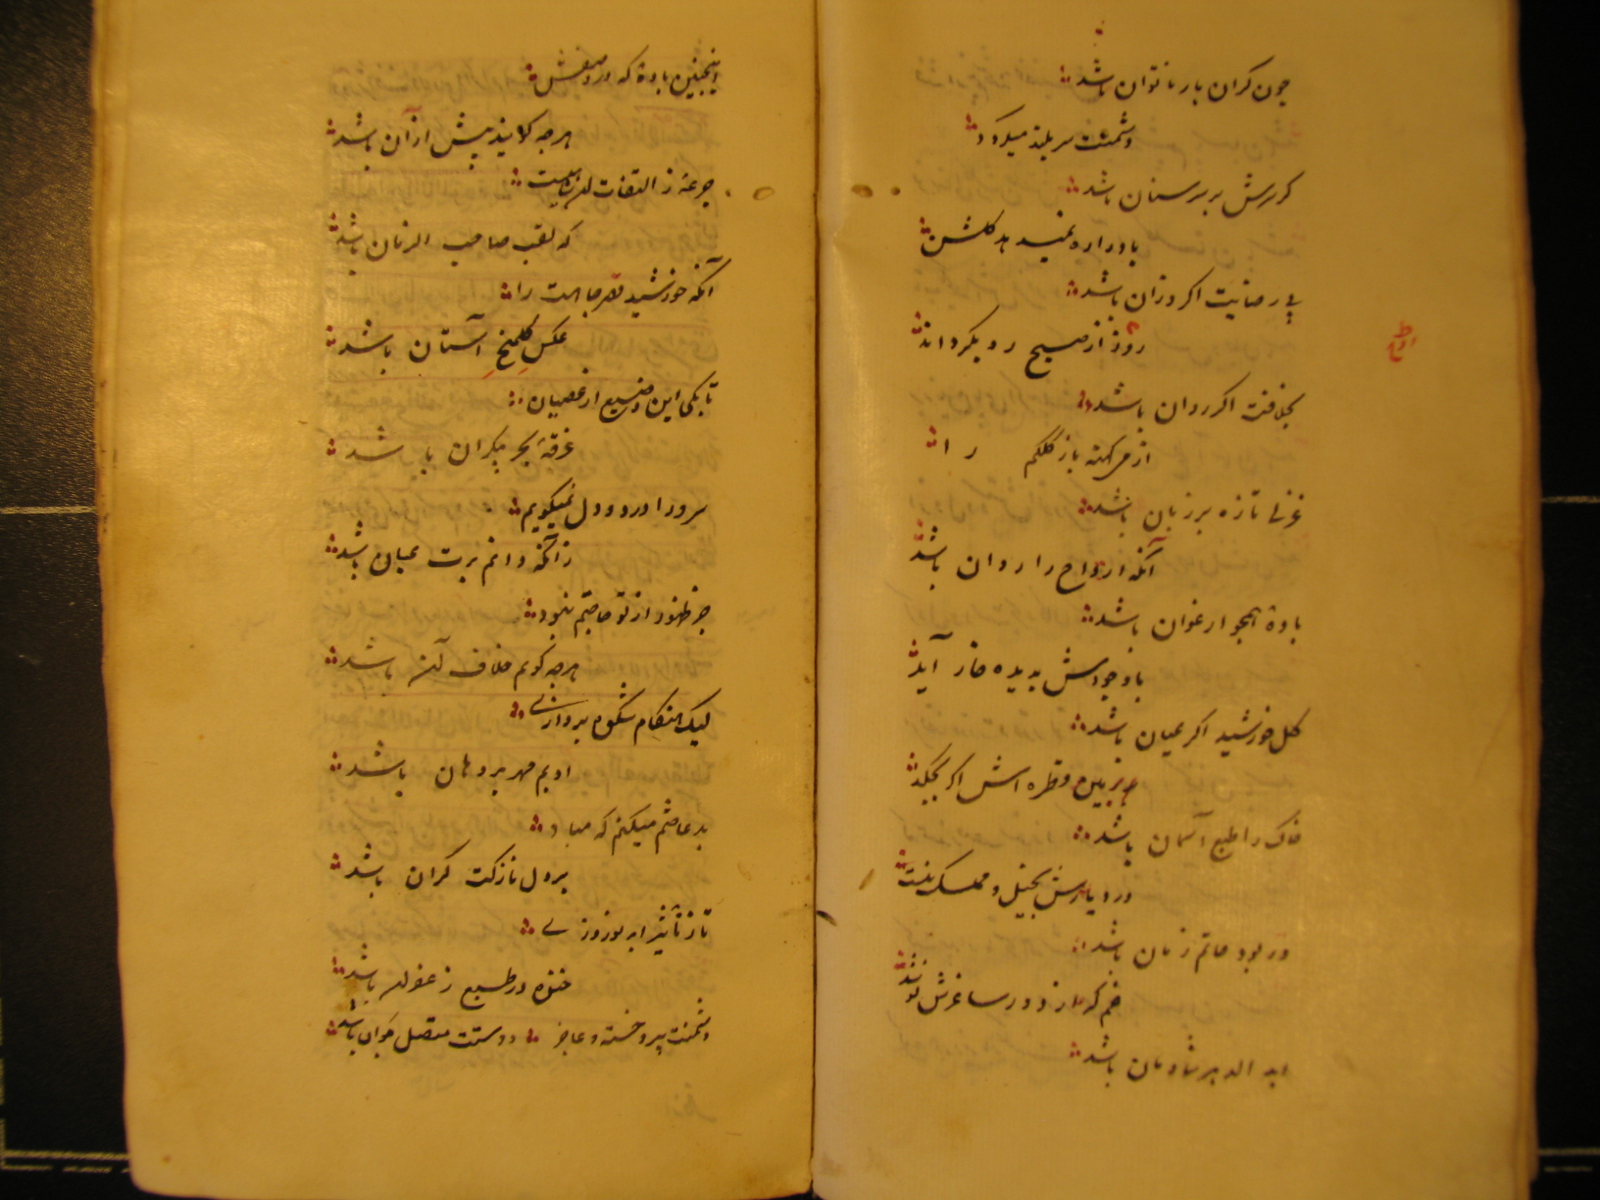 چون گران بار ناتوان باشد
دشمنت سر بلند میگردد
گر سرش بر سر سنان باشد
باد را ره نمیدهد گلشن
بی رضایت اگر وزان باشد
روز از صبح رو بگرداند
بخلافت اگر روان باشد
از مرکبه باز کلکم را
غزلی تازه بر زبان باشد
آنکه ارواح را روان باشد
بادهٔ همچو ارغوان باشد
با وجودش بدیده خار آید
گل خورشید اگر عیان باشد
بر زمین قطره اش اگر بچکد
خاک را طبع آسمان باشد
درد یارش بخیل و ممسک نیست
ور بود حاتم زمان باشد
خم که از دور ساغرش نوشد
ابد الدهر شادمان باشد
اینچنین بادهٔ که در وصفش
هرچه گویند بیش از آن باشد
جرعهٔ ز التفات
که لقب صاحب الزمان باشد
آنکه خورشید قصر جاهت را
عکس گلمیخ آستان باشد
تا بکی این وضیع از عصیان
غرقهٔ بحر بیکران باشد
سرورا درد دل نمیگویم
زانکه دانم برت عیان باشد
جز ظهور از تو حاجتم نبود
هرچه گویم خلاف آن باشد
لیک هنگام شکوه پردازی
ادبم مهر بر دهان باشد
بدعا ختم میکنم که مباد
بر دل نازکت گران باشد
تا ز تأثیر ابر نوروزی
خنده در طبع زعفران باشد
دشمنت پیر و خسته و عاجز دوستت متصل جوان باشد